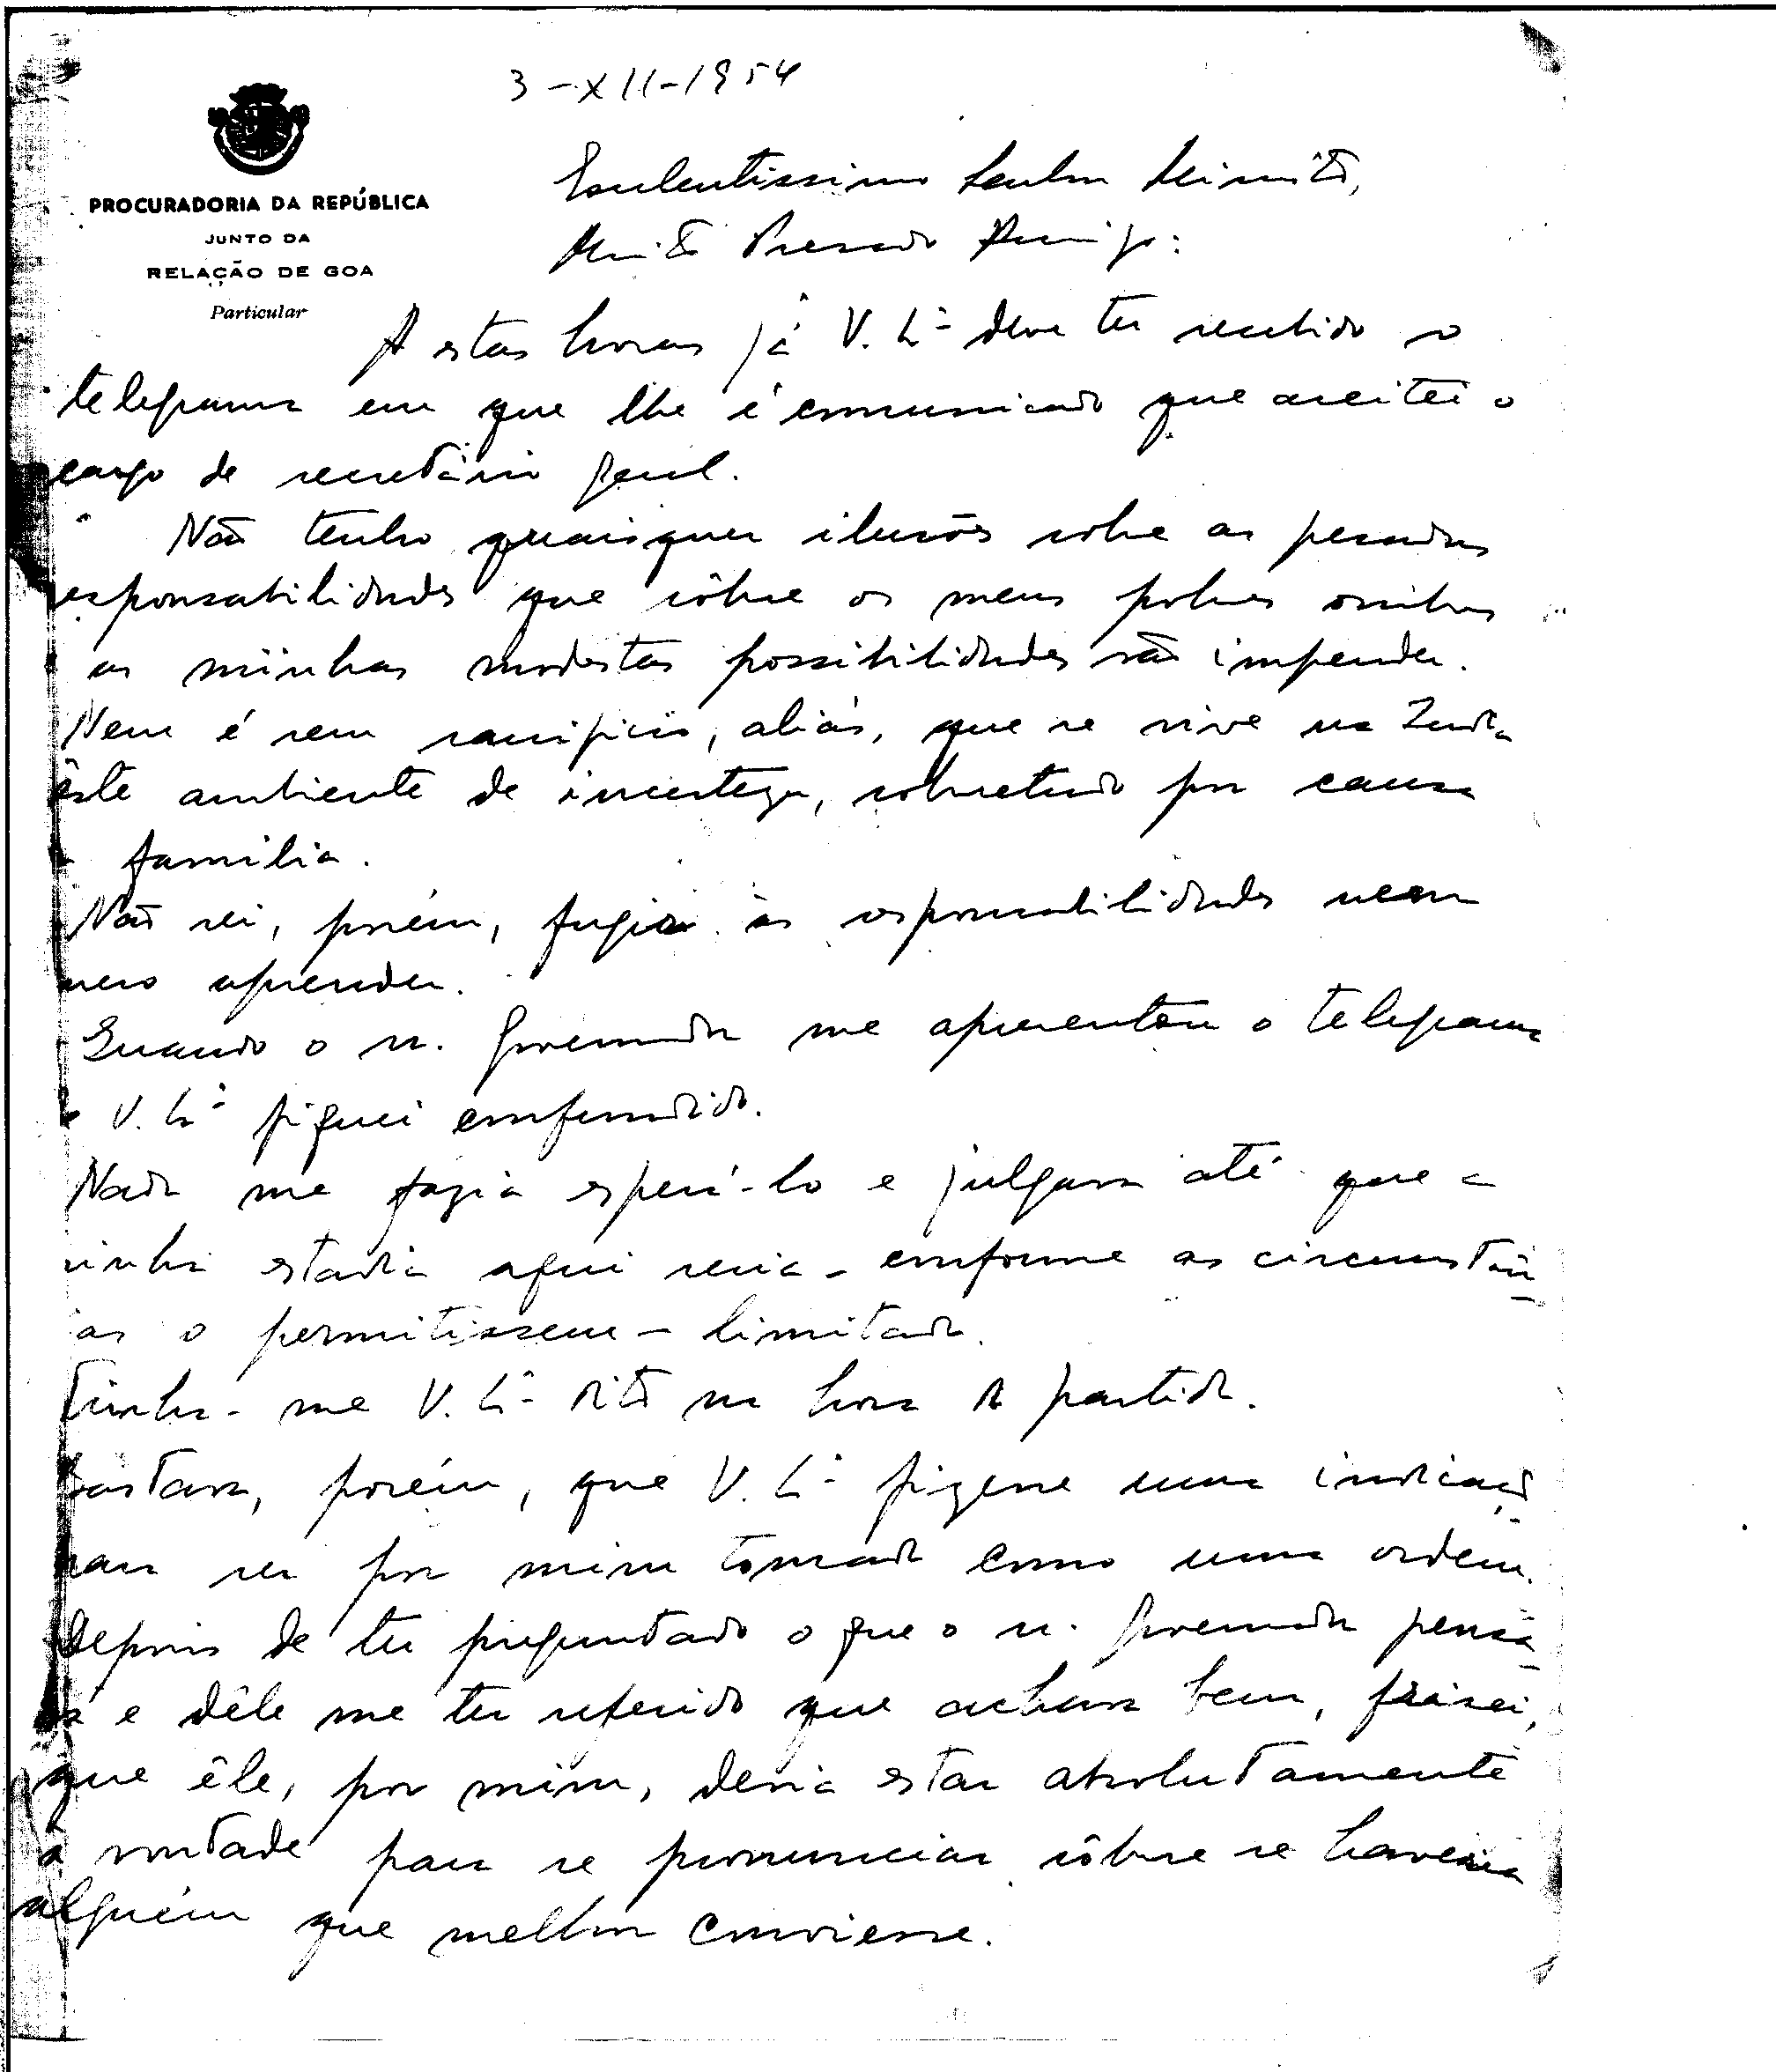 3-XII-1954
PROCURADORIA DA REPÚBLICA
JUNTO DA
RELAÇÃO DE GOA
Particular
Excelentissimo Senhor Ministro,
Muito Presado Amigo:
A estas horas já V. Exª deve ter recebido o
telegrama em que lhe é comunicado que aceitei o
cargo de secretário geral.
Não tenho quaisquer ilusões sobre as pesadas
responsabilidades que sôbre os meus pobres ombros
as minhas modestas possibilidades vão impender.
Nem é sem sacrificio, aliás, que se vive na India
êste ambiente de incerteza, sobretudo por causa
familia.
Não sei, porém, fugir às responsabilidades nem
quero aprender.
Quando o sr. Governador me apresentou o telegrama
V. Exª fiquei confundido.
Nada me fazia esperá-lo e julgava até que a
minha estadia aqui seria - conforme as circunstân
as o permitissem - limitada.
Tinha-me V. Exª dito na hora da partida.
Bastava, porém, que V. Exª fizesse uma indicação
para ser por mim tomada como uma ordem.
Depois de ter preguntado o que o sr. Governador pensa
va e dêle me ter referido que achava bem, frisei,
que êle, por mim, devia estar absolutamente
à vontade para se pronunciar sôbre se haveria
alguém que melhor conviesse.